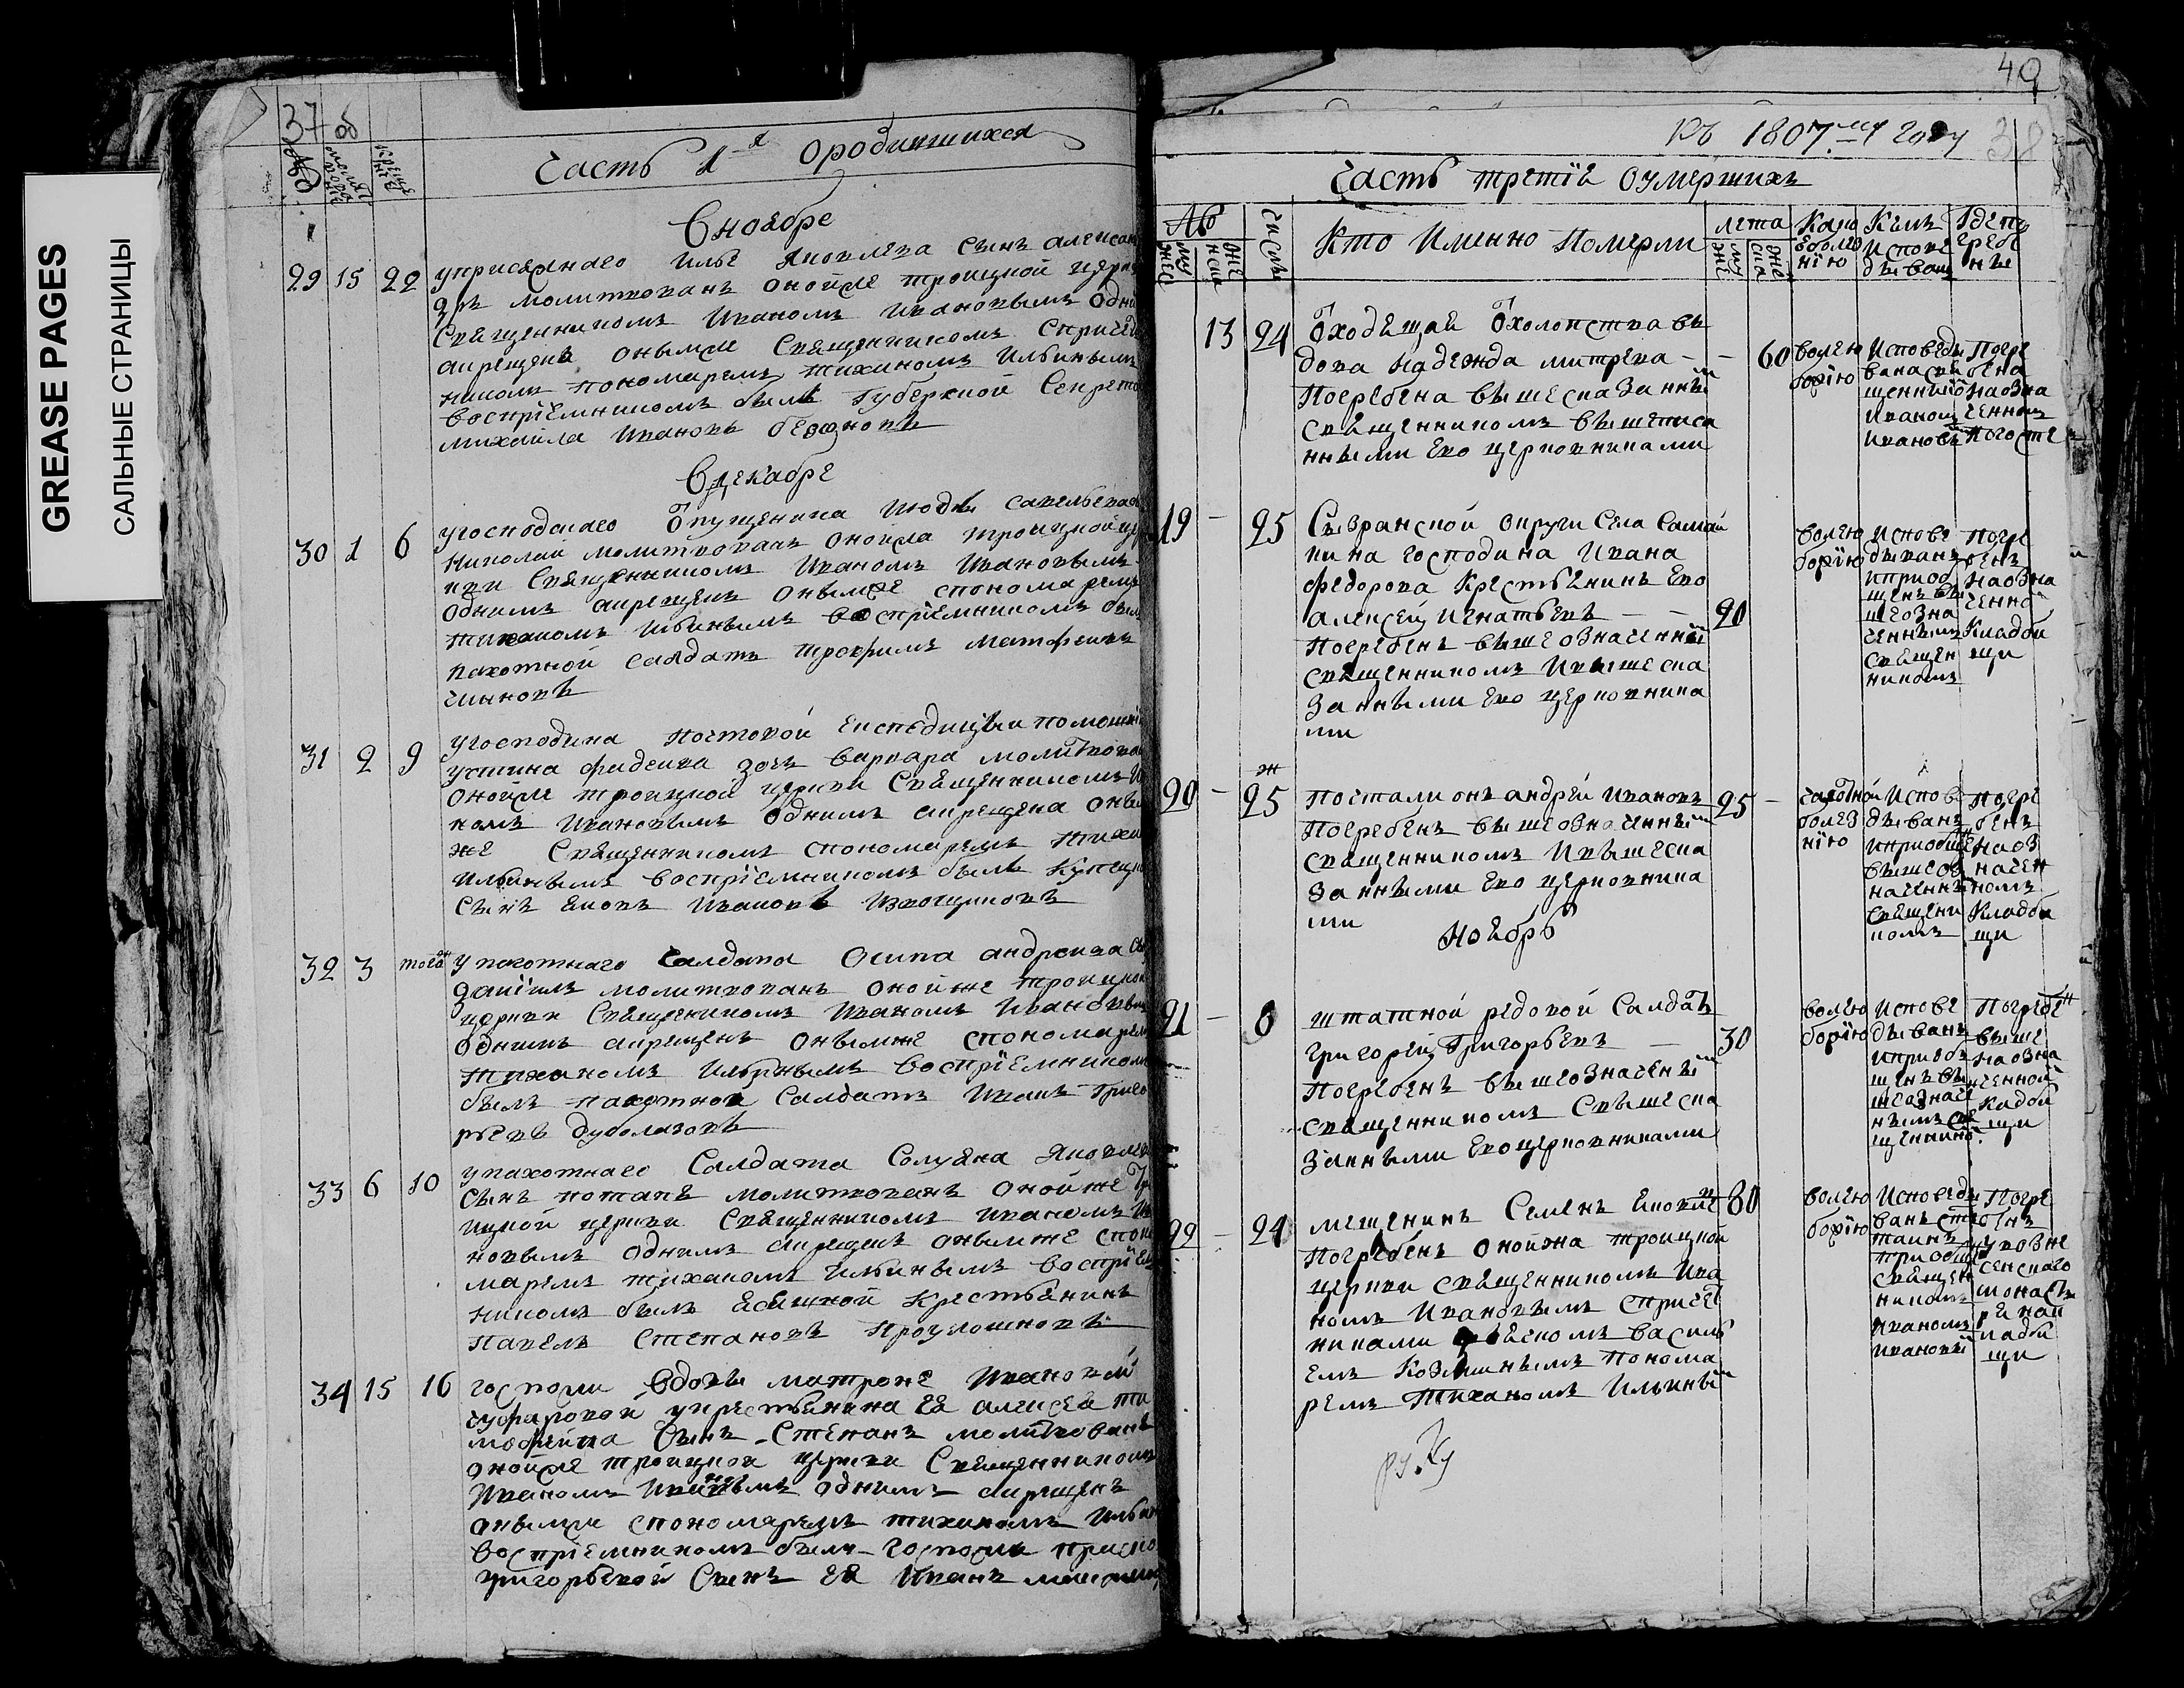 GREASE PAGES
САЛЬНЫЕ СТРАНИЦЫ
37 об
Часть 1я ородившихся
Вноябре
29 15 22 уприсяжнаго Илье Яковлева сынъ алексан
дръ молитвованъ онойже троицкой церкви
Священникомъ Иваномъ Ивановымъ Одни
акрещенъ онымже Священникомъ Спричет
никомъ пономаремъ тиханомъ Ильинымъ
воспрiемникомъ былъ Губернской Секрето
михайла Ивановъ
Вдекабре
30 1 6 угосподскаго людѣ савельева
Николай молитвованъ онойжа троицкой це
ркви Священникомъ Иваномъ Ивановымъ
однимъ акрещенъ онымже спономаремъ
тиханомъ Ильинымъ воспрiемникомъ былъ
пахотной салдатъ трофимъ матфеевъ
31 2 9 угосподина почтовой експедицыи помошни
устина дочь варвара молитвова
онойже троицкой церкви Священникомъ И
номъ Ивановымъ однимъ акрещена оны
же Священникомъ спономаремъ Тихан
Ильинымъ воспрiемникомъ былъ Купецк
сынъ Ивановъ
32 3 тогож упахотнаго Салдата Осипа андреива сы
данiилъ молитвованъ онойже троицкой
церкви Священикомъ Иваномъ Ивановым
однимъ акрещенъ онымже спономарем
тиханомъ Ильинымъ воспрiемникомъ
былъ пахотной Салдатъ Иванъ Григо
рьевъ
33 6 10 упахотнаго Салдата Яковлев
сынъ потапъ молитвованъ онойже Тро
ицкой церкви Священникомъ Иваномъ Ива
новымъ однимъ акрещенъ онымже споно
маремъ тиханомъ Ильинымъ воспрiем
никомъ былъ Ясашной Крестьянинъ
Павелъ Степановъ
34 15 16 госпожи вдовы матроне Ивановой
укрестьянина ея алексея ти
мофеива Сынъ Степанъ молитвованъ
онойже троицкой церкви Священникомъ
Иваномъ Ивановымъ однимъ акрещенъ
онымже спономаремъ тиханомъ Ильин
воспрiемникомъ былъ госпожи
григорьевой Сынъ ея Иванъ
49
38
Въ 1807мъ году
Часть третiя Оумершихъ
№ числы Кто Именно Померли лета Какою болезнiю Кемъ Исповедываны Где погребены
муже женска муже женска
13 24 Вхоля
дова Надежда митрева - - 60
Погребена вышесказаннымъ
священникомъ вышеписа
нными Ево церковниками
Исповеды
вана свя
щенникомъ
Иваномъ
Ивановымъ
Погре
бена
наозна
ченномъ
погосте
19 - 25 Сызранской округи Села
кина господина Ивана
федорова Крестьянинъ Ево
алексей Игнатьевъ - - 20
Погребенъ вышеозначеннымъ
священникомъ Ивышеска
занными Ево церковника
ми
Испове
дыванъ
иприоб
щенъ вы
шеозна
ченнымъ
священ
никомъ
Погре
бенъ
наозна
ченно
Кладби
щи
20 - 25 Почталионъ андрей Ивановъ 25 -
Погребенъ вышеозначеннымъ
священникомъ Ивышеска
занными Ево церковника
ми
болез
нiю
Испове
дыванъ
иприобще
вышеоз
наченнымъ
священи
комъ
Погре
бенъ
наоз
начен
номъ
Кладби
щи
Ноябрь
21 - 8 штатной редовой Салдатъ
Григорей Григорьевъ - 30
Погребенъ вышеозначенны
священникомъ Свышеска
занными Евоцерковниками
Испове
дыванъ
иприоб
щенъ вы
шеозначе
нымъ свя
щенникомъ
Погребен
выше
наозна
ченной
Кладби
щи
22 - 24 мещенинъ Семенъ 80
Погребенъ онойжа троицкой
церкви священникомъ Ива
номъ Ивановымъ Спричет
никами дьячкомъ василь
емъ Козминымъ Понома
ремъ Тиханомъ Ильинымъ
Исповеды
ванъ
приобщ
священ
никомъ
Иваномъ
Ивановы
Погре
бенъ
увозне
сенскаго
монасты
ря накладби
щи